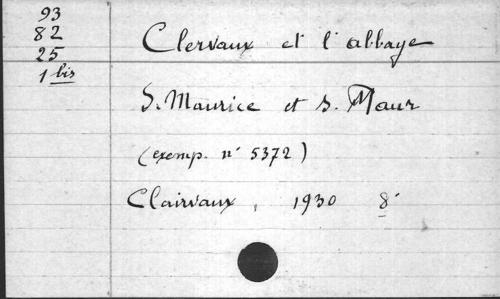 93
82
25
1 bis
Clervaux et l'abbaye
S. Maurice et S. Maur
(exemp. n° 5372)
Clairvaux, 1930 8°